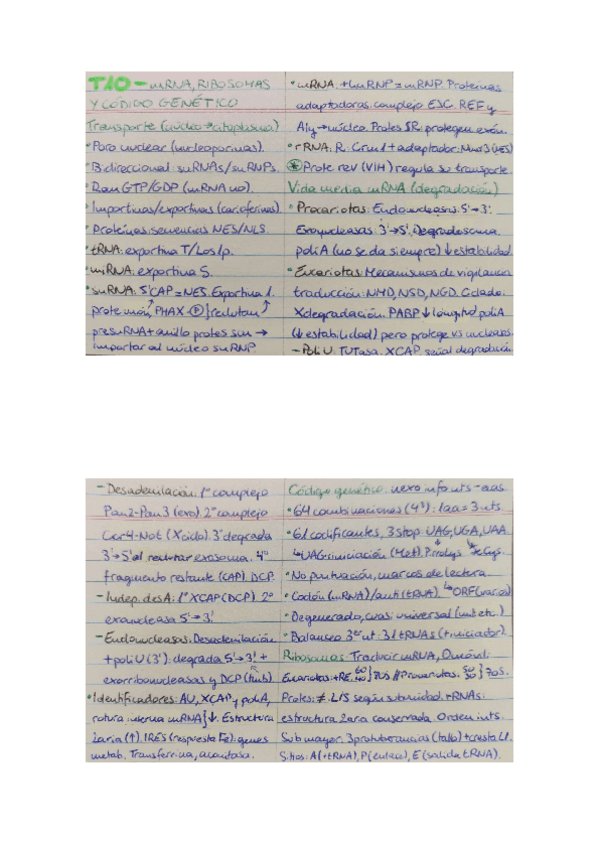 T.10 - mRNA, RIBOSOMAS
Y CÓDIGO GENÉTICO
Transporte (núcleo → citoplasma)
• Poro nuclear (nucleoporinas).
• Bidireccional: snRNAs/snRNPs.
• Ran GTP/GDP (mRNA no).
• Importinas/exportinas (carioferinas).
• Proteínas: secuencias NES/NLS.
• tRNA: exportina T/Los1p.
• miRNA: exportina 5.
• snRNA: 5'CAP = NES. Exportina 1.
prote unión, PHAX-P} reclutan
presnRNA + anillo protes sm →
importar al núcleo snRNP
• mRNA: + hnRNP = mRNP. Proteínas
adaptadoras: complejo EJC. REF y
Aly → núcleo. Protes SR: protegen exón.
• rRNA: R. Crm1 + adaptador: Nmd3 (NES)
* Prote rev (VIH) regula su transporte.
Vida media mRNA (degradación)
• Procariotas: Endonucleasas: 5'→3'.
Exonucleasas: 3'→5'. Degradosoma
poliA (no se da siempre) ↓ estabilidad.
• Eucariotas: Mecanismos de vigilancia
traducción: NMD, NSD, NGD. Cidado:
Xdegradación. PABP ↓ longitud poliA
(↓ estabilidad) pero protege vs nucleasas.
- Poli U: TUTasa. XCAP, señal degradación.
- Desadenilación: 1º complejo
Pan2-Pan3 (exo). 2º complejo
Ccr4-Not (Xcido). 3º degrada
3'→5' al reclutar exosoma. 4º
fragmento restante (CAP). DCP.
- Indep. desA: 1º XCAP (DCP). 2º
exonucleasa 5'→3'.
- Endonucleasas: Desadenilación
+ poliU (3'): degrada 5'→3' +
exorribonucleasas y DCP
• Identificadores: AU, XCAP, poliA,
rotura interna mRNA} ↓. Estructura
2aria (↑). IRES (respuesta Fe): genes
metab. Transferrina, aconitasa.
Código genético: nexo info nts - aas.
• 64 combinaciones (4³): 1aa = 3 nts
• 61 codificantes, 3 stop: UAG, UGA, UAA
↳ UAG: iniciación (Met). Pirrolys SeCys.
• No puntuación, marcos de lectura
• Codón (mRNA)/anti (tRNA). ↳ ORF (varios)
• Degenerado, cuasi universal (mt etc.)
• Balanceo 3er nt: 31 tRNAs (+ iniciador).
Ribosomas: Traducir mRNA, Ø móvil:
Eucariotas: + RE. 60 40} 80S // Procariotas: 50 30} 70S.
Protes: ≠. L/S según subunidad. + RNAs:
estructura 2ara conservada. Orden ints.
Sub mayor: 3 protuberancias (tallo) + cresta L1.
Sitios: A (+ tRNA), P (enlace), E (salida tRNA).